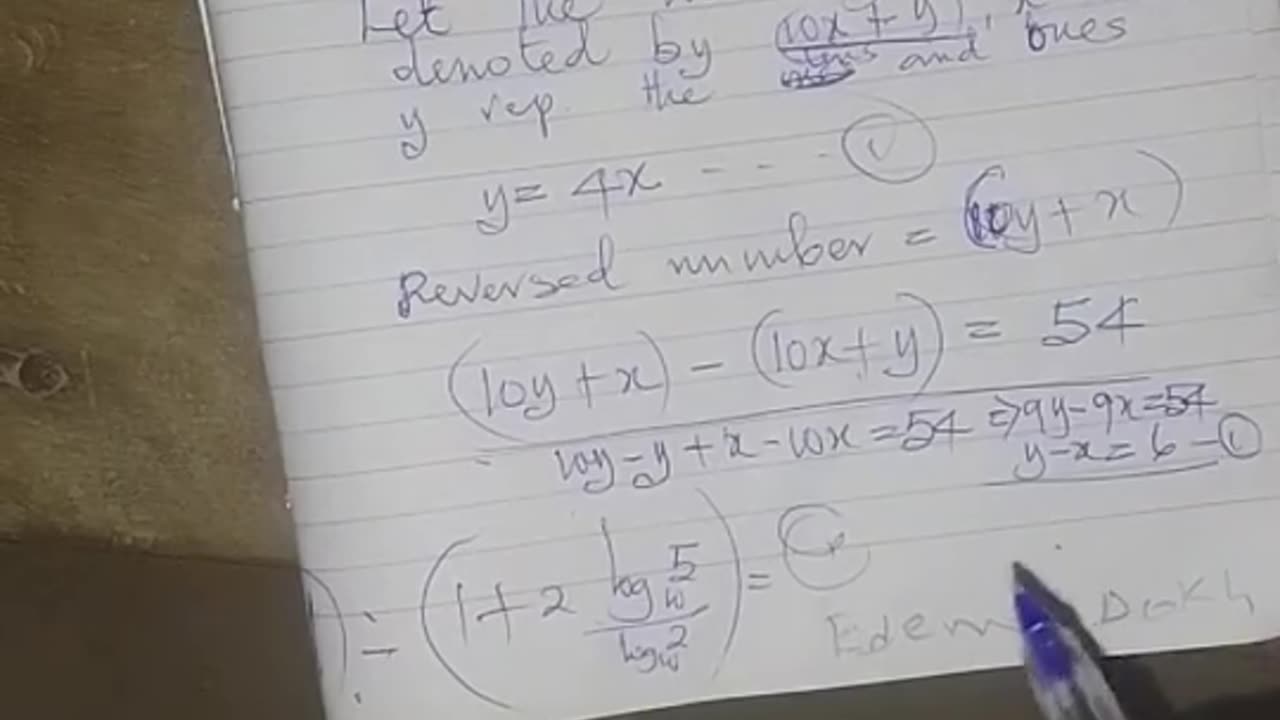 Let the
denoted by (10x + y), x
y rep. the tens and ones
y = 4x - - - ✓
Reversed number = (10y + x)
(10y + x) - (10x + y) = 54
10y - y + x - 10x = 54 ⇒ 9y - 9x = 54
y - x = 6 -
) ÷ (1 + 2 log₁₀5 / log₁₀2) =
Edem